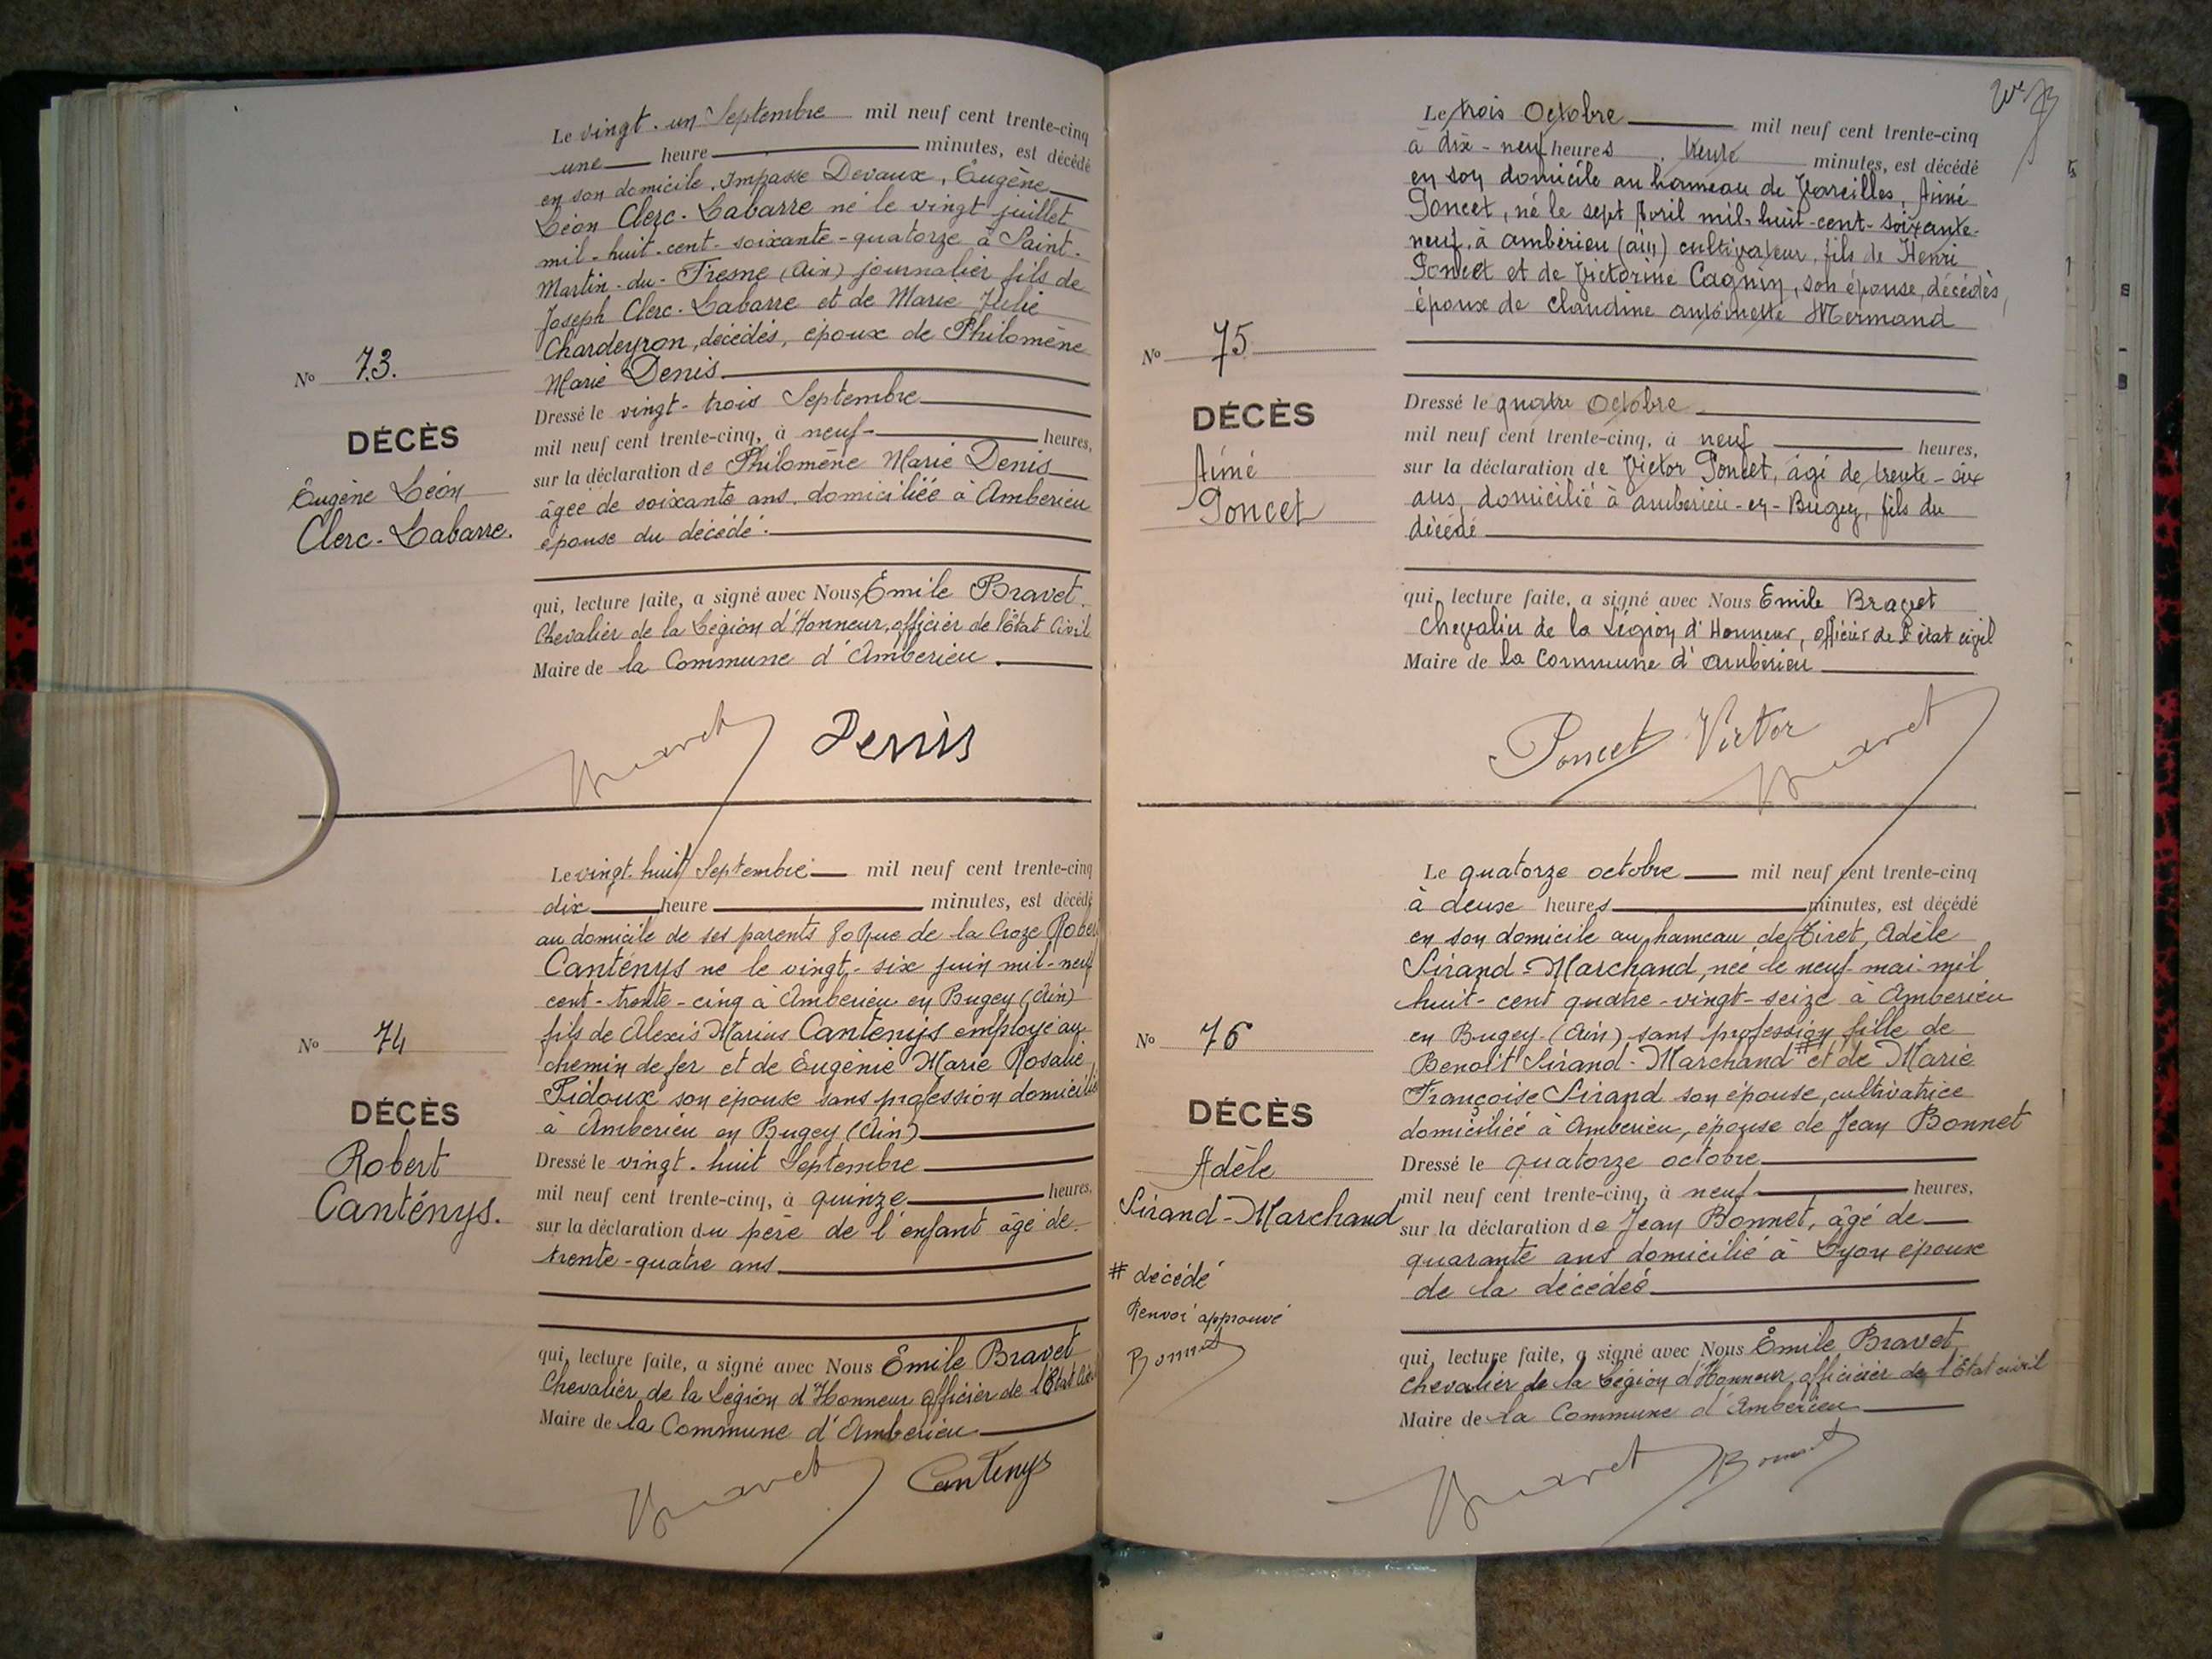 Le vingt-un Septembre mil neuf cent trente-cinq
une heure minutes, est décédé
en son domicile, Impasse Devaux, Eugène
Léon Clerc-Labarre né le vingt juillet
mil-huit-cent-soixante-quatorze à Saint-
Martin-du-Fresne (Ain) journalier fils de
Joseph Clerc-Labarre et de Marie Julie
Chardeyron, décédés, époux de Philomène
Marie Denis
Dressé le vingt-trois Septembre
mil neuf cent trente-cinq, à neuf heures,
sur la déclaration de Philomène Marie Denis
âgée de soixante ans, domiciliée à Ambérieu
épouse du décédé.
qui, lecture faite, a signé avec Nous Émile Bravet
Chevalier de la Légion d'Honneur, officier de l'État Civil
Maire de la Commune d'Ambérieu.
Nº 73.
DÉCÈS
Eugène Léon
Clerc-Labarre.
Bravet Denis
Le vingt-huit Septembre mil neuf cent trente-cinq
dix heure minutes, est décédé
au domicile de ses parents Rue de la Croze Robert
Canténys né le vingt-six juin mil-neuf
cent-trente-cinq à Ambérieu en Bugey (Ain)
fils de Alexis Marius Canténys employé au
chemin de fer et de Eugénie Marie Rosalie
Pidoux son épouse sans profession domiciliés
à Ambérieu en Bugey (Ain)
Dressé le vingt-huit Septembre
mil neuf cent trente-cinq, à quinze heures,
sur la déclaration du père de l'enfant âgé de
trente-quatre ans
qui, lecture faite, a signé avec Nous Émile Bravet
Chevalier de la Légion d'Honneur officier de l'État Civil
Maire de la Commune d'Ambérieu
Nº 74
DÉCÈS
Robert
Canténys.
Bravet Cantenys
Le trois Octobre mil neuf cent trente-cinq
à dix-neuf heures trente minutes, est décédé
en son domicile au hameau de Vareilles, Aimé
Poncet, né le sept Avril mil-huit-cent-soixante-
neuf, à ambérieu (ain) cultivateur, fils de Henri
Poncet et de Victorine Cagnin, son épouse, décédés,
époux de Claudine antoinette Mermand
Nº 75
DÉCÈS
Aimé
Poncet
Dressé le quatre Octobre
mil neuf cent trente-cinq, à neuf heures,
sur la déclaration de Victor Poncet, âgé de trente-six
ans, domicilié à ambérieu-en-Bugey, fils du
décédé
qui, lecture faite, a signé avec Nous Emile Bravet
Chevalier de la Légion d'Honneur, officier de l'état civil
Maire de la Commune d'ambérieu
Poncet Victor Bravet
Le quatorze octobre mil neuf cent trente-cinq
à deux heures minutes, est décédé
en son domicile au hameau de Tiret, Adèle
Sirand-Marchand, née le neuf mai mil
huit-cent quatre-vingt-seize à Ambérieu
en Bugey (Ain) sans profession fille de
Benoît Sirand-Marchand # et de Marie
Françoise Sirand son épouse, cultivatrice
domiciliée à Ambérieu, épouse de Jean Bonnet
Dressé le quatorze octobre
mil neuf cent trente-cinq, à neuf heures,
sur la déclaration de Jean Bonnet, âgé de
quarante ans domicilié à Lyon époux
de la décédée
qui, lecture faite, a signé avec Nous Émile Bravet
Chevalier de la Légion d'Honneur officicier de l'État civil
Maire de la Commune d'Ambérieu
Nº 76
DÉCÈS
Adèle
Sirand-Marchand
# décédé
Renvoi approuvé
Bonnet
Bravet Bonnet